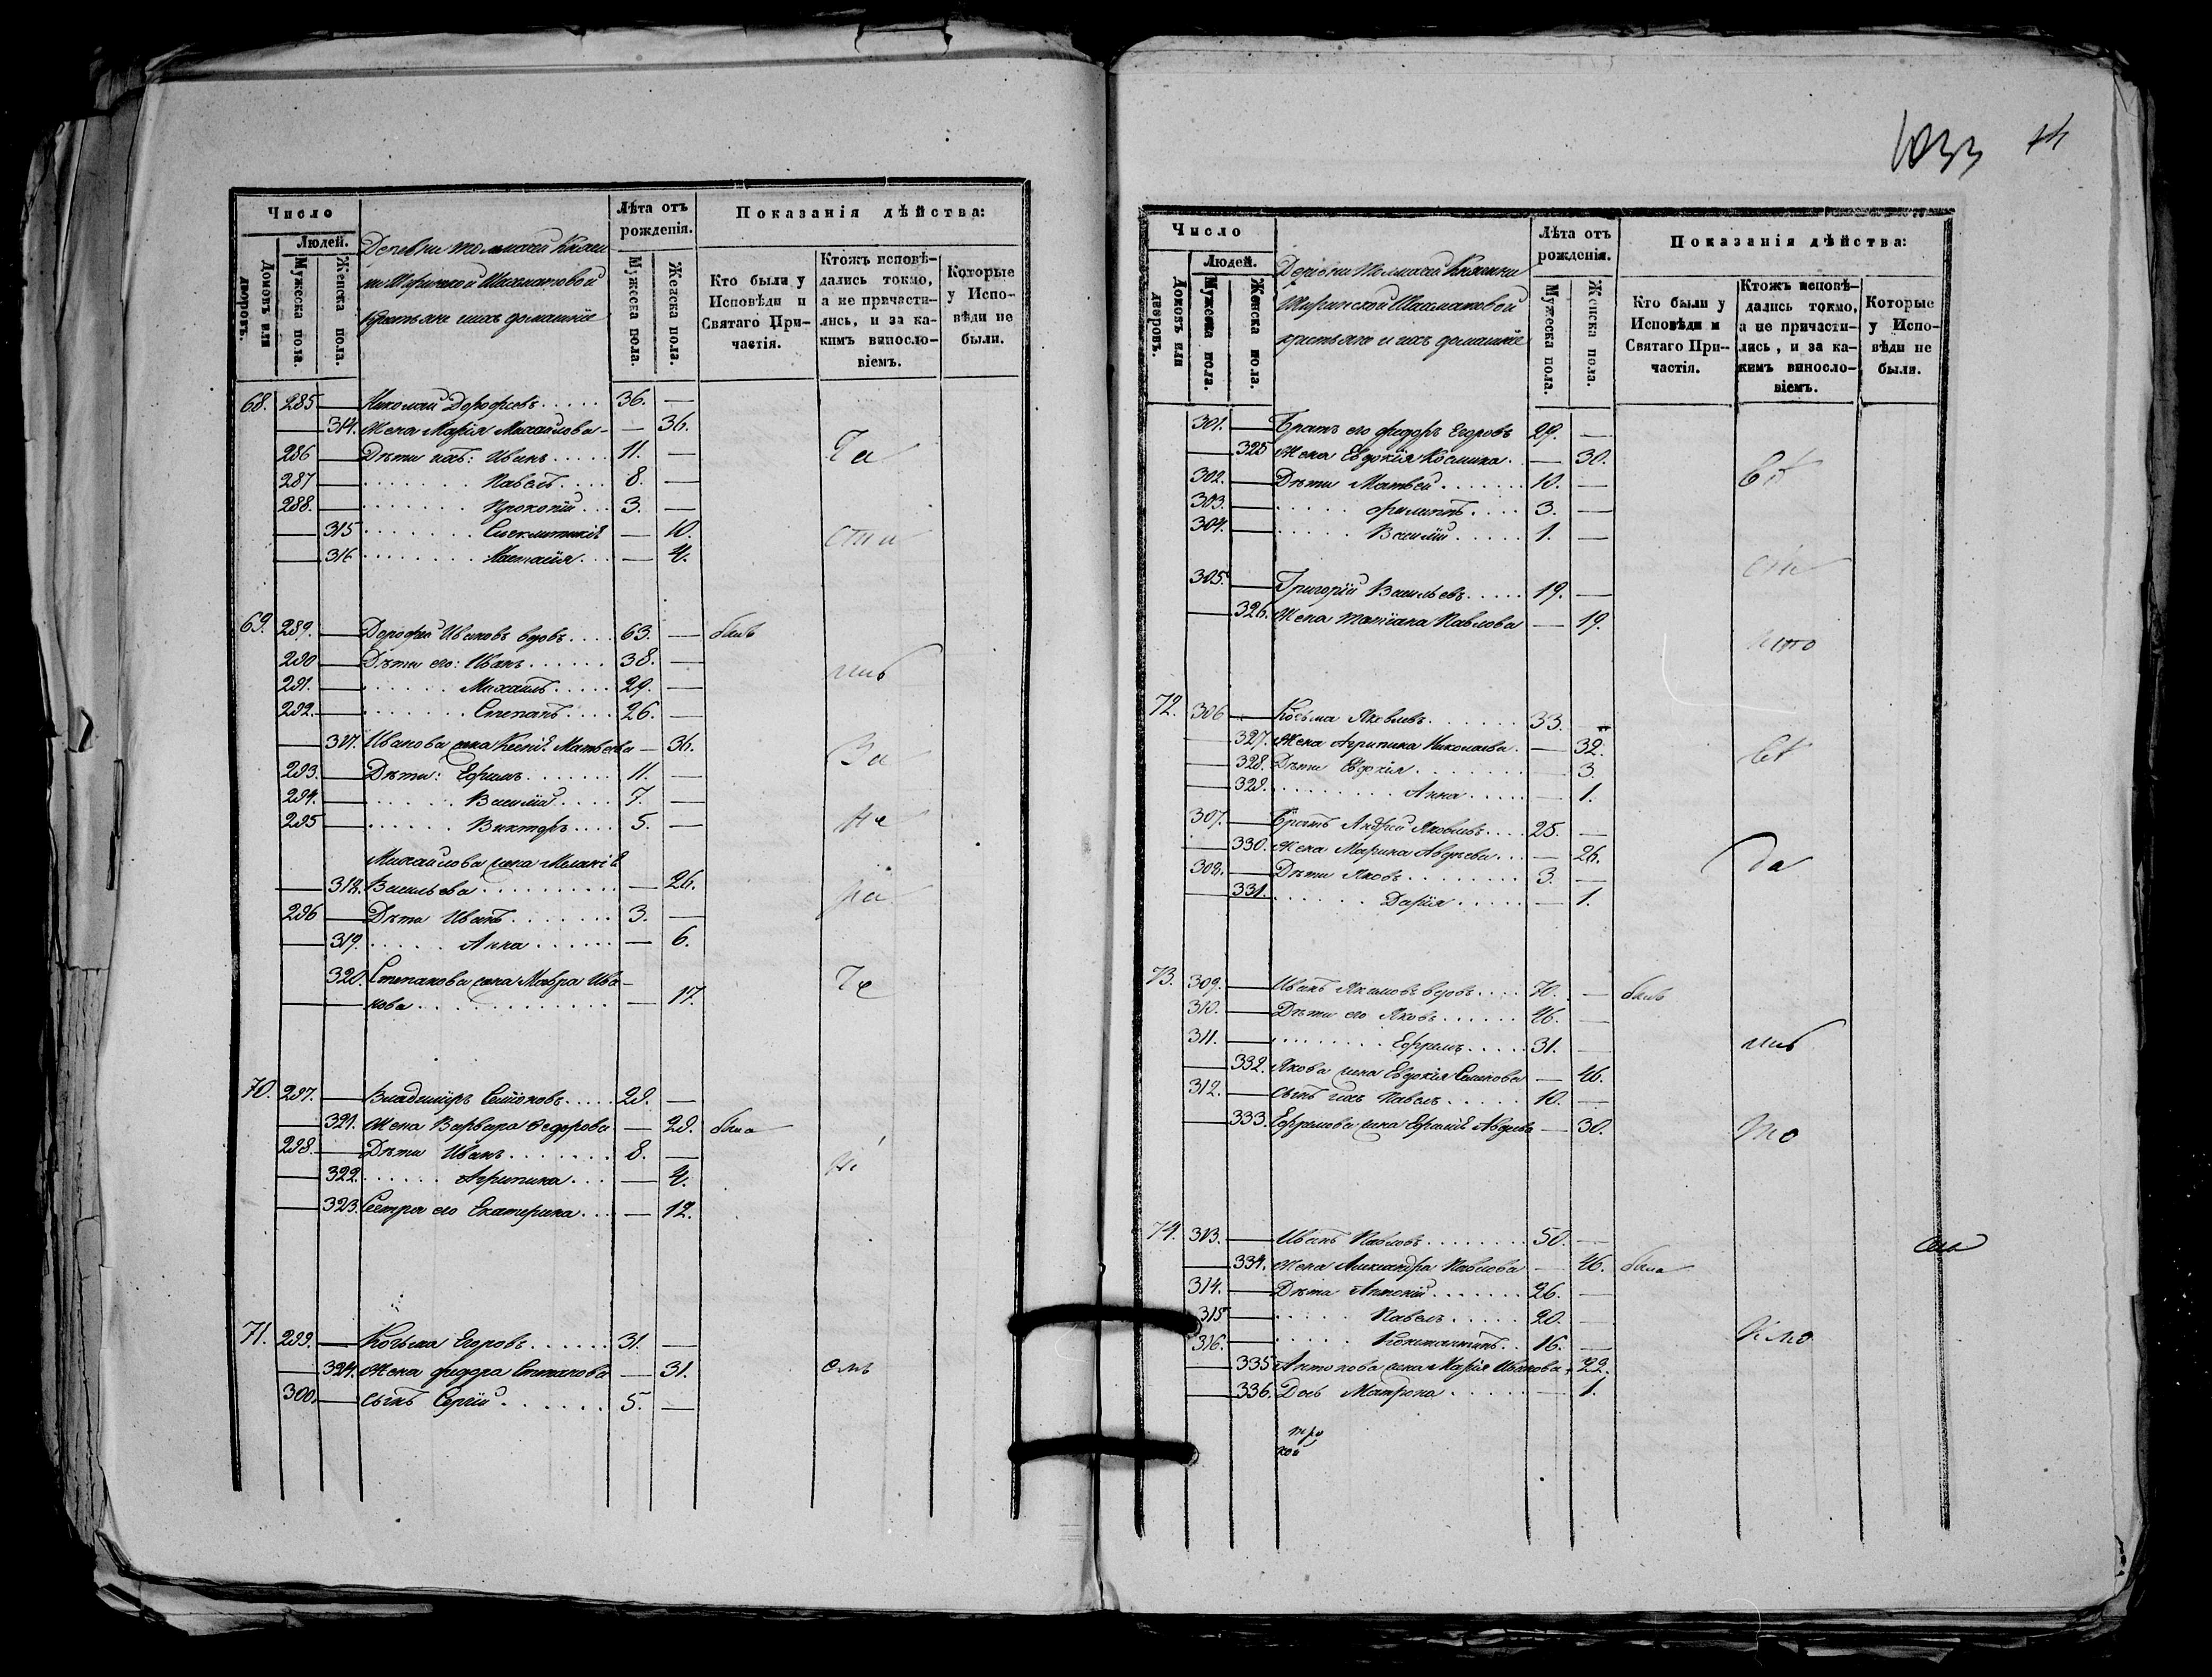 Число
Людей.
Домовъ или дворовъ.
Мужеска пола.
Женска пола.
Деревни Толмасей Княги
ни Ширинской Шахматовой
крестьяне и ихъ домашніе
Лѣта отъ рожденія.
Мужеска пола.
Женска пола.
Показанія дѣйства:
Кто были у Исповѣди и Святаго Причастія.
Ктожъ исповѣдались токмо, а не причастились, и за какимъ винословіемъ.
Которые у Исповѣди не были.
68. 285 — Николай Дорофеевъ 36. —
— 314. Жена Марія Михайлова — 36.
286 — Дѣти ихъ: Иванъ 11. —
287 — Павелъ 8. —
288. — Прокопій 3. —
— 315 — 10.
— 316 Настасія — 4.
69. 289. — Дорофей Ивановъ вдовъ 63. — былъ
290 — Дѣти его: Иванъ 38. —
291. — Михаилъ 29. —
292. — Степанъ 26. —
— 317. Иванова жена Ксенія Матвѣева — 36.
293. — Дѣти: Ефимъ 11. —
294. — Василій 7. —
295 — Викторъ 5. —
Михайлова жена Меланія
— 318. Васильева — 26.
296 — Дѣти Иванъ 3. —
— 319. Анна — 6.
320. Степанова жена Мавра Ива-
— нова — 17.
70. 297. — Владимиръ Семеновъ 29. —
— 321. Жена Варвара Ѳедорова — 29. была
298. — Дѣти Иванъ 8. —
— 322. Агрипина — 4.
— 323. Сестра его Екатерина — 12.
71. 299. — Козьма Егоровъ 31. —
— 324. Жена Степанова — 31.
300. — Сынъ Сергѣй 5. —
1033
Число
Людей.
Домовъ или дворовъ.
Мужеска пола.
Женска пола.
Деревни Толмасей Княгини
Ширинской Шахматовой
крестьяне и ихъ домашніе
Лѣта отъ рожденія.
Мужеска пола.
Женска пола.
Показанія дѣйства:
Кто были у Исповѣди и Святаго Причастія.
Ктожъ исповѣдались токмо, а не причастились, и за какимъ винословіемъ.
Которые у Исповѣди не были.
301. — Братъ его Федоръ Егоровъ 29. —
— 325 Жена Евдокія Козмина — 30.
302. — Дѣти Матвей 10. —
303. — Филиппъ 3. —
304. — Василій 1. —
305. — Григорій Васильевъ 19. —
— 326. Жена Татіана Павлова — 19.
72. 306 — Козьма Яковлевъ 33. —
— 327. Жена Агрипина Николаева — 32.
— 328. Дѣти Евдокія — 3.
— 329. Анна — 1.
307. — Братъ Андрей Яковлевъ 25. —
— 330. Жена Марина Авдѣева — 26.
308. — Дѣти Яковъ 3. —
— 331. Дарія — 1.
да
73. 309. — Иванъ Акимовъ вдовъ 70. — былъ
310. — Дѣти его Яковъ 46. —
311. — Ефремъ 31. —
— 332. Якова жена Евдокія Семенова — 46.
312. — Сынъ ихъ Павелъ 10. —
— 333. Ефремова жена Авдеева — 30.
74. 313. — Иванъ Павловъ 50. —
— 334. Жена Александра Павлова — 46. была
314. — Дѣти Антоній 26. —
315 — Павелъ 20. —
316. — Константинъ 16. —
— 335 Антонова жена Марія Иванова — 22.
— 336. Дочь Матрона — 1.